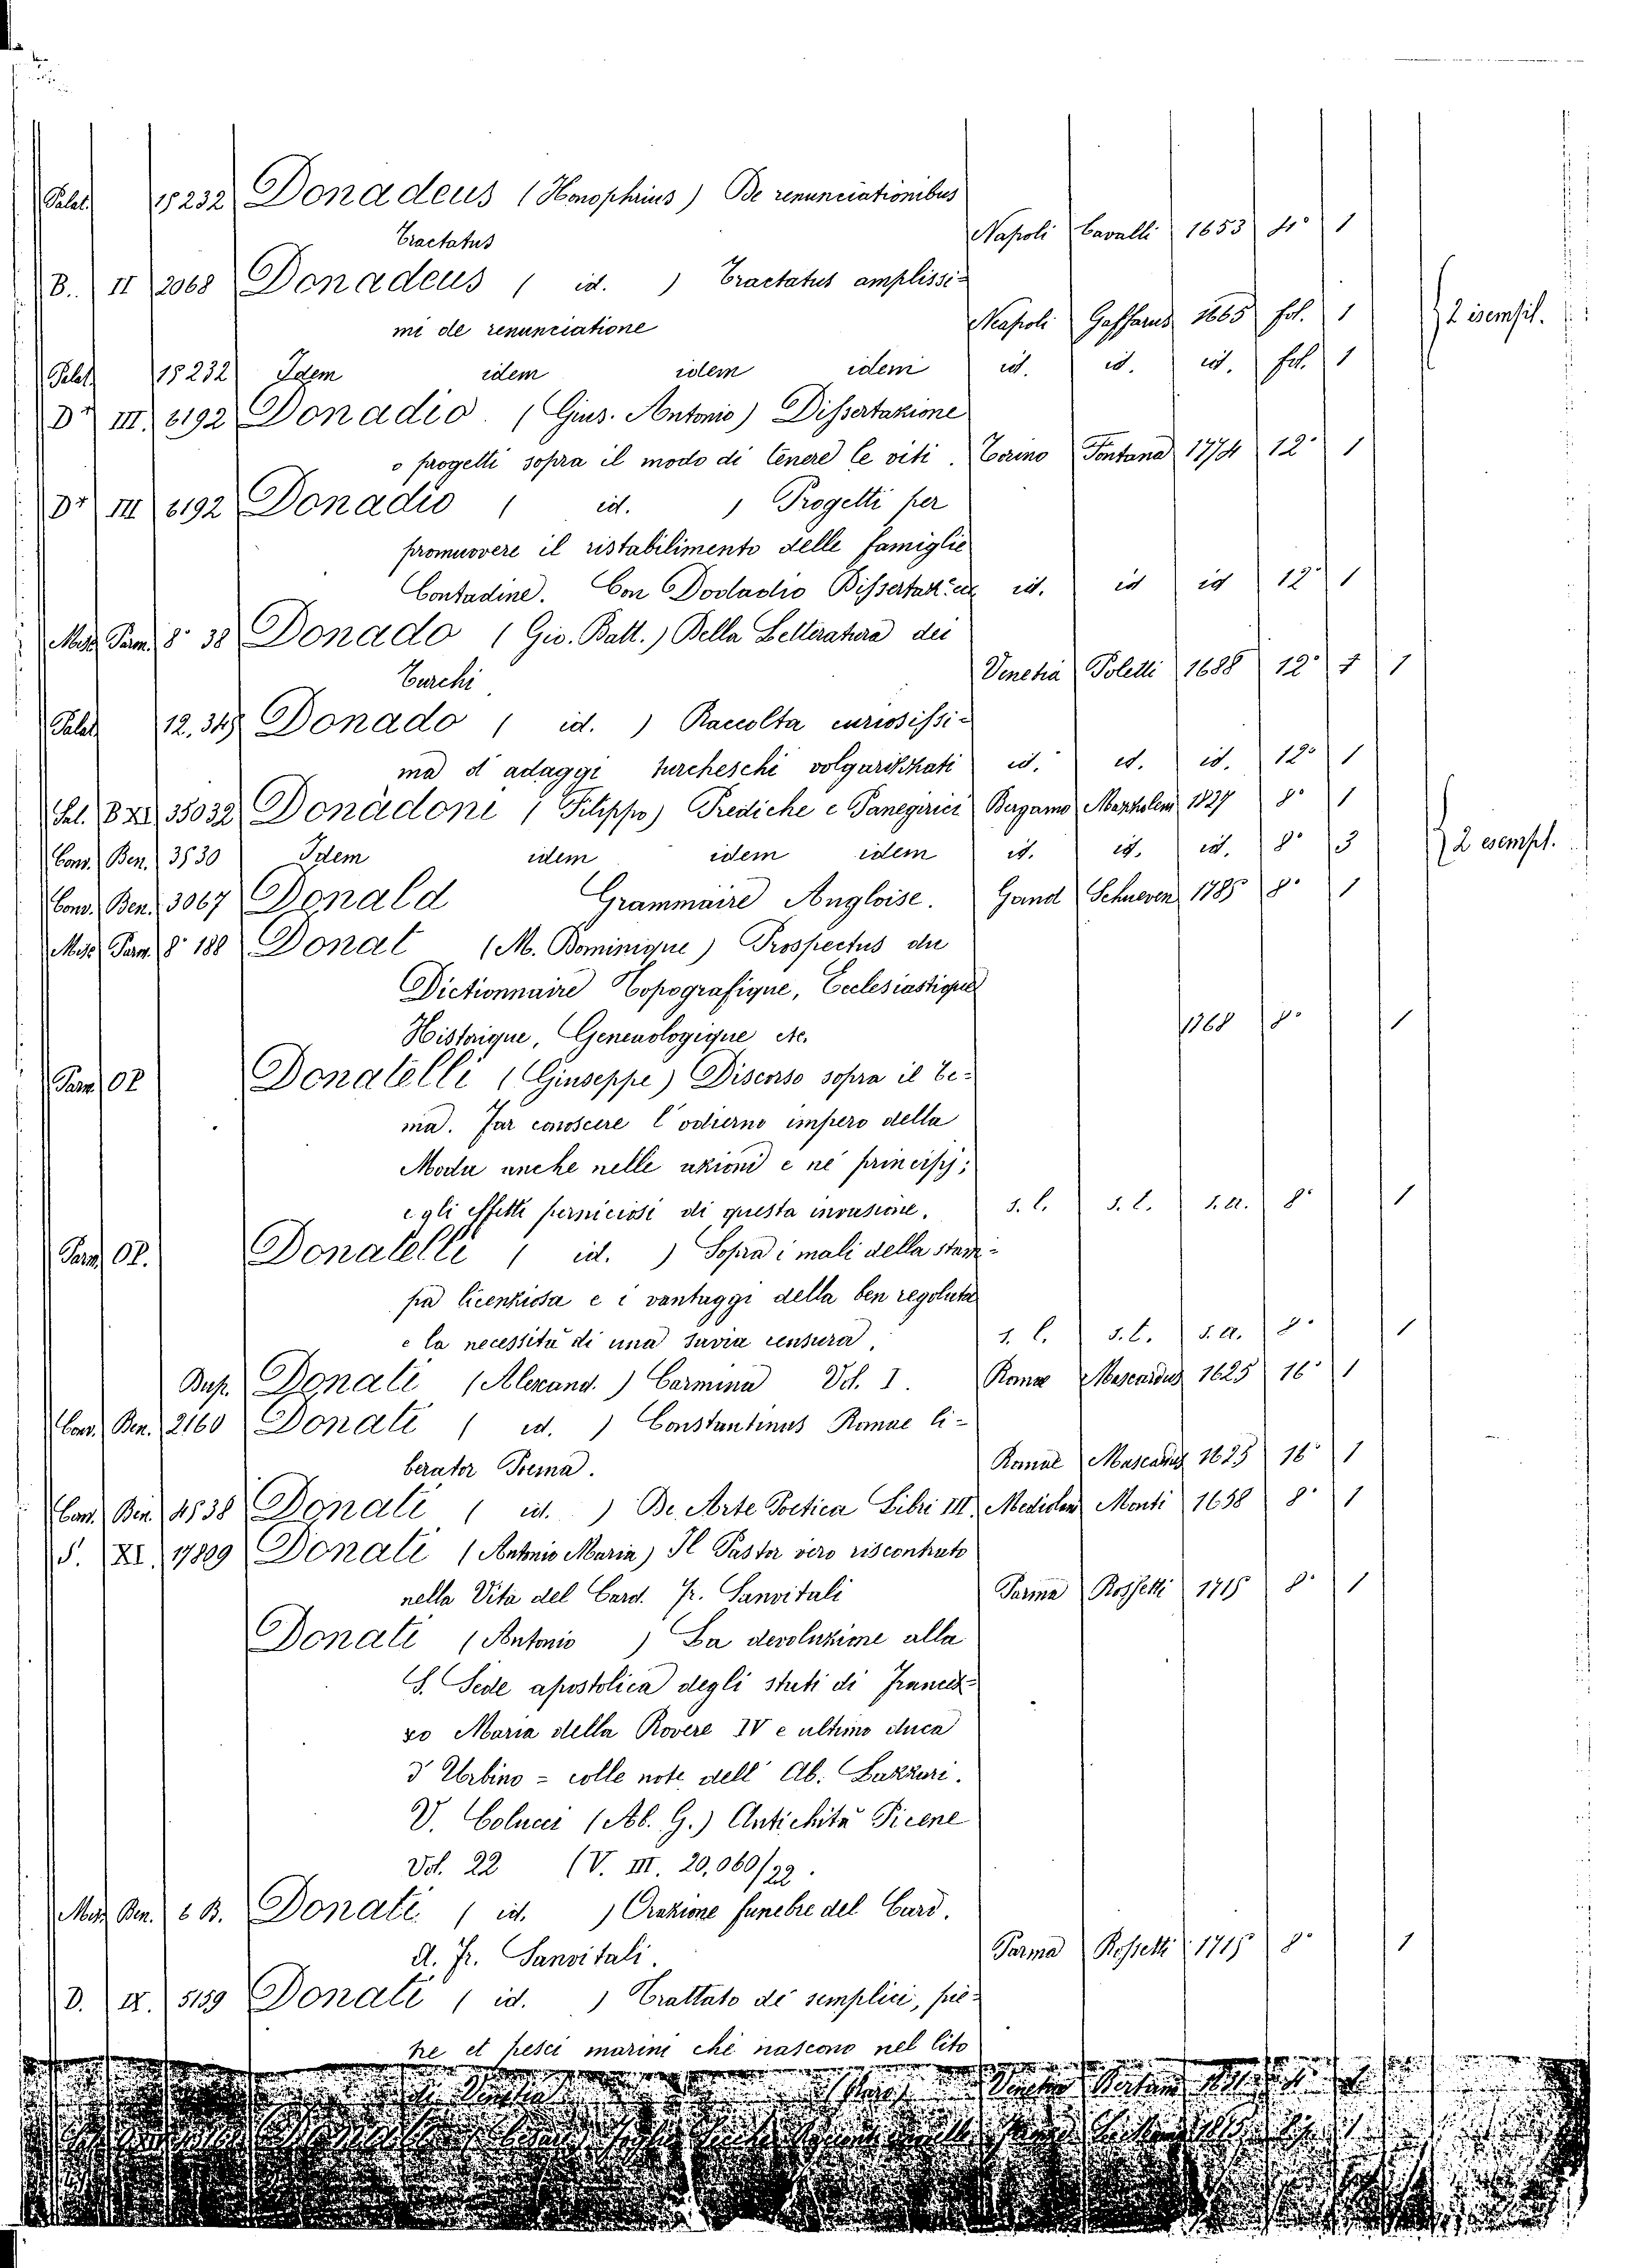 Palat. 15232 Donadeus (Honophrius) De renunciationibus
Tractatus Napoli Cavalli 1653 4° 1
B. II 2068 Donadeus ( id. ) Tractatus amplissi-
mi de renunciatione Neapoli Gaffarus 1665 fol. 1 2 esempl.
Palat. 15232 Idem idem idem idem id. id. id. fol. 1
D+ III. 6192 Donadio (Gius. Antonio) Dissertazione
o progetti sopra il modo di tenere le viti. Torino Fontana 1774 12° 1
D+ III 6192 Donadio ( id. ) Progetti per
promuovere il ristabilimento delle famiglie
Contadine. Con id. id id 12° 1
Misc. Parm. 8° 38 Donado (Gio. Batt.) Della Letteratura dei
Turchi Venetia Poletti 1688 12° 1 1
Palat. Donado ( id. ) Raccolta curiosissi-
ma d'adaggi turcheschi volgarizzati id. id. id. 12° 1
Sal. B XI 35032 Donadoni (Filippo) Prediche e Panegirici Bergamo Mazzoleni 1827 8° 1
Conv. Ben. 3530 Idem idem idem idem id. id. id. 8° 3 2 esempl.
Conv. Ben. 3067 Donald Grammaire Angloise. Gand 1785 8° 1
Misc. Parm. 8° 188 Donat (M. Dominique) Prospectus du
Dictionnaire Topografique, Ecclesiastique
Historique, Geneuologique etc. 1768 8° 1
Parm. Donatelli (Giuseppe) Discorso sopra il te-
ma. Far conoscere l'odierno impero della
Moda anche nelle azioni e ne' principj;
e gli effetti perniciosi di questa invasione. s. l. s. t. s. a. 8° 1
Parm. Donatelli ( id. ) Sopra i mali della stam-
pa licenziosa e i vantaggi della ben regolata
e la necessità di una savia censura. s. l. s. t. s. a. 8° 1
Dup. Donati (Alexand.) Carmina Vol. I. Romae Mascardus 1625 16° 1
Conv. Ben. 2160 Donati ( id. ) Constantinus Romae li-
berator Poema. Romae Mascardus 1625 16° 1
Conv. Ben. 4538 Donati ( id. ) De Arte Poetica Libri III. Mediolan Monti 1658 8° 1
S. XI. 17809 Donati (Antonio Maria) Il Pastor vero riscontrato
nella Vita del Card. Fr. Sanvitali Parma Rossetti 1715 8° 1
Donati (Antonio ) La devoluzione alla
S. Sede apostolica degli stati di Frances-
co Maria della Rovere IV e ultimo duca
d'Urbino = colle note dell' Ab. Lazzari.
V. Colucci (Ab. G.) Antichità Picene
Vol. 22 (V. III. 20,060/22.
Misc. Ben. 6 B. Donati ( id. ) Orazione funebre del Card.
A. Fr. Sanvitali. Parma Rossetti 1715 8° 1
D. IX. 5159 Donati ( id. ) Trattato de semplici, pie-
tre et pesci marini che nascono nel lito
di Venetia Venetia Bertano